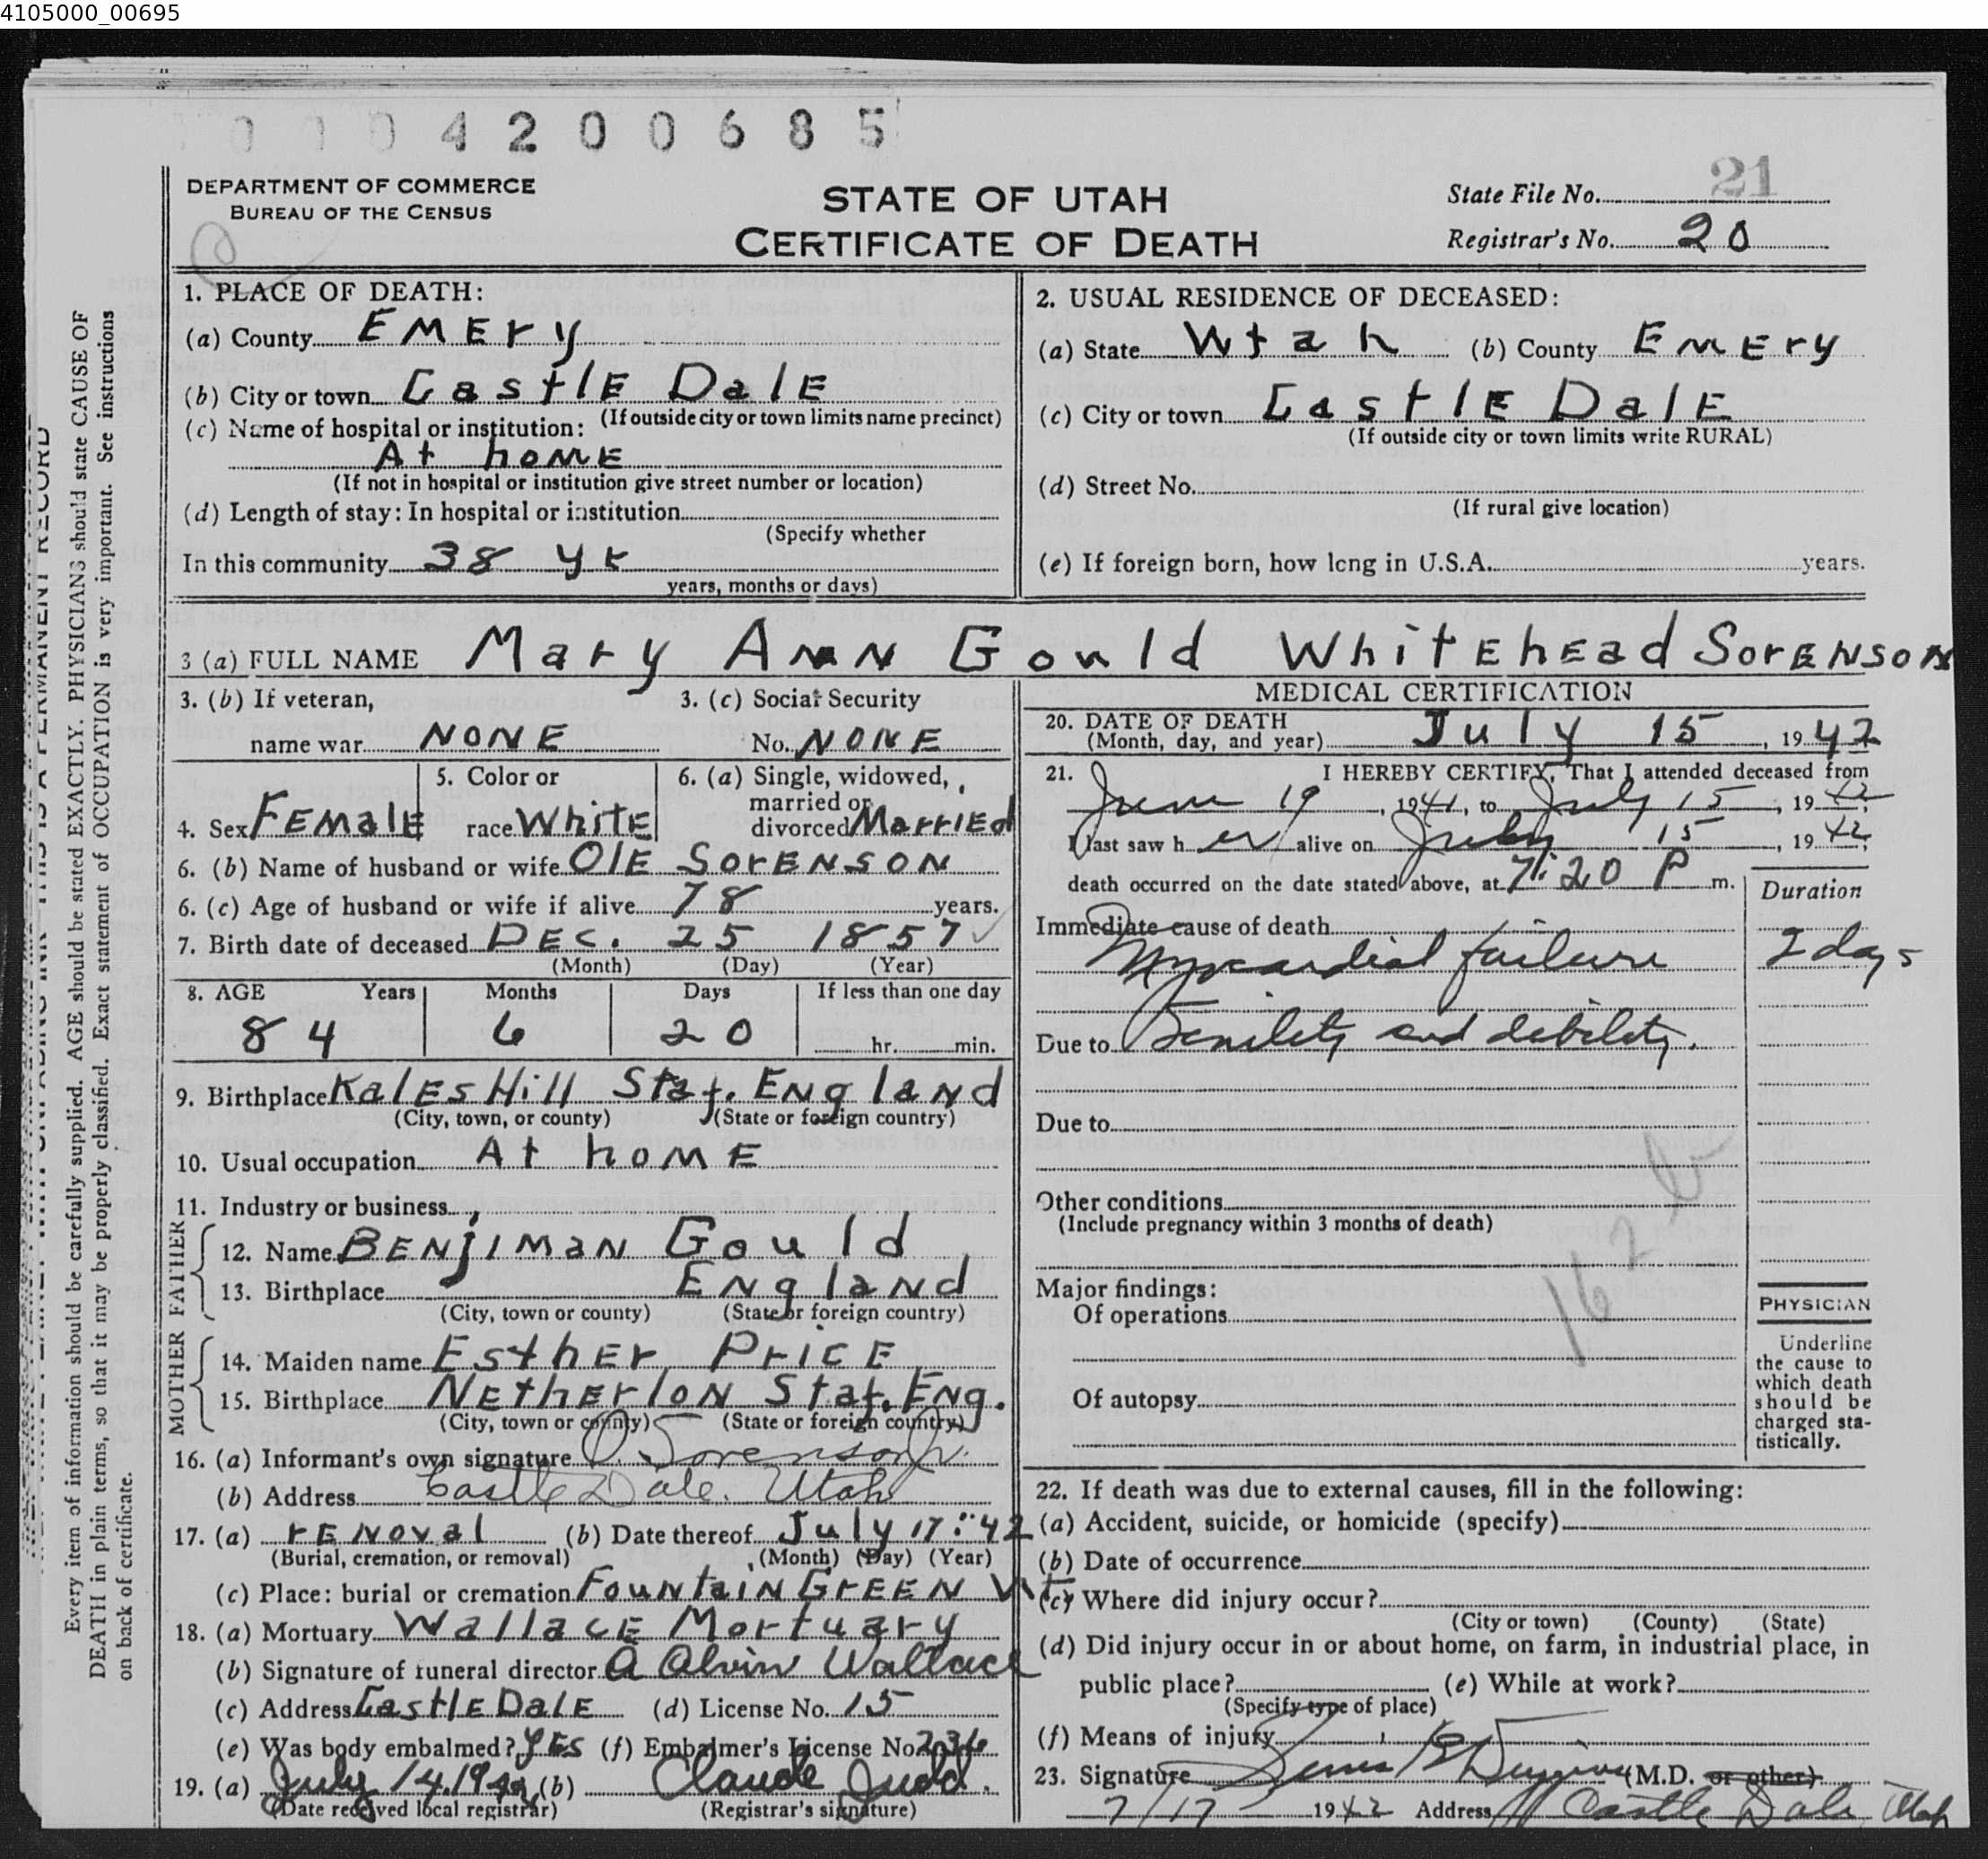 4105000_00695
4200685
DEPARTMENT OF COMMERCE
BUREAU OF THE CENSUS
STATE OF UTAH
CERTIFICATE OF DEATH
State File No. 21
Registrar's No. 20
1. PLACE OF DEATH:
(a) County EMEry
(b) City or town CastlE DalE
(If outside city or town limits name precinct)
(c) Name of hospital or institution:
At homE
(If not in hospital or institution give street number or location)
(d) Length of stay: In hospital or institution
(Specify whether
In this community 38 yr
years, months or days)
2. USUAL RESIDENCE OF DECEASED:
(a) State Utah (b) County EmEry
(c) City or town CastlE DalE
(If outside city or town limits write RURAL)
(d) Street No.
(If rural give location)
(e) If foreign born, how long in U.S.A. years.
3 (a) FULL NAME Mary ANN Gould WhitEhEad SorENSON
3. (b) If veteran,
name war NONE
3. (c) Social Security
No. NONE
4. Sex FEMalE
5. Color or
race WhitE
6. (a) Single, widowed,
married or
divorced MarriEd
6. (b) Name of husband or wife OlE SorENSON
6. (c) Age of husband or wife if alive 78 years.
7. Birth date of deceased DEC. 25 1857
(Month) (Day) (Year)
8. AGE Years Months Days If less than one day
84 6 20 hr. min.
9. Birthplace KalEs Hill Staf. ENglaNd
(City, town, or county) (State or foreign country)
10. Usual occupation At homE
11. Industry or business
FATHER
12. Name BENjiMaN Gould
13. Birthplace ENglaNd
(City, town or county) (State or foreign country)
MOTHER
14. Maiden name EsthEr PricE
15. Birthplace NEthErtoN Staf. ENg.
(City, town or county) (State or foreign country)
16. (a) Informant's own signature O. Sorenson Jr.
(b) Address Castle Dale. Utah
17. (a) rEmoval (b) Date thereof July 17 : 42
(Burial, cremation, or removal) (Month) (Day) (Year)
(c) Place: burial or cremation FouNtaiN GrEEN Ut
18. (a) Mortuary WallacE Mortuary
(b) Signature of funeral director A Alvin Wallace
(c) Address CastlE DalE (d) License No. 15
(e) Was body embalmed? yEs (f) Embalmer's License No. 236
19. (a) July 14, 1942 (b) Claude Judd.
(Date received local registrar) (Registrar's signature)
MEDICAL CERTIFICATION
20. DATE OF DEATH
(Month, day, and year) July 15, 1942
21. I HEREBY CERTIFY, That I attended deceased from
June 19, 1941, to July 15, 1942;
I last saw her alive on July 15, 1942;
death occurred on the date stated above, at 7:20 P m.
Duration
Immediate cause of death
Myocardial failure 2 days
Due to Senility and debility.
Due to
Other conditions
(Include pregnancy within 3 months of death)
162 b
Major findings:
Of operations
Of autopsy
PHYSICIAN
Underline
the cause to
which death
should be
charged sta-
tistically.
22. If death was due to external causes, fill in the following:
(a) Accident, suicide, or homicide (specify)
(b) Date of occurrence
(c) Where did injury occur?
(City or town) (County) (State)
(d) Did injury occur in or about home, on farm, in industrial place, in
public place? (e) While at work?
(Specify type of place)
(f) Means of injury
23. Signature (M.D. or other)
7/17 1942 Address Castle Dale, Utah
Every item of information should be carefully supplied. AGE should be stated EXACTLY. PHYSICIANS should state CAUSE OF
DEATH in plain terms, so that it may be properly classified. Exact statement of OCCUPATION is very important. See instructions
on back of certificate.
THIS IS A PERMANENT RECORD